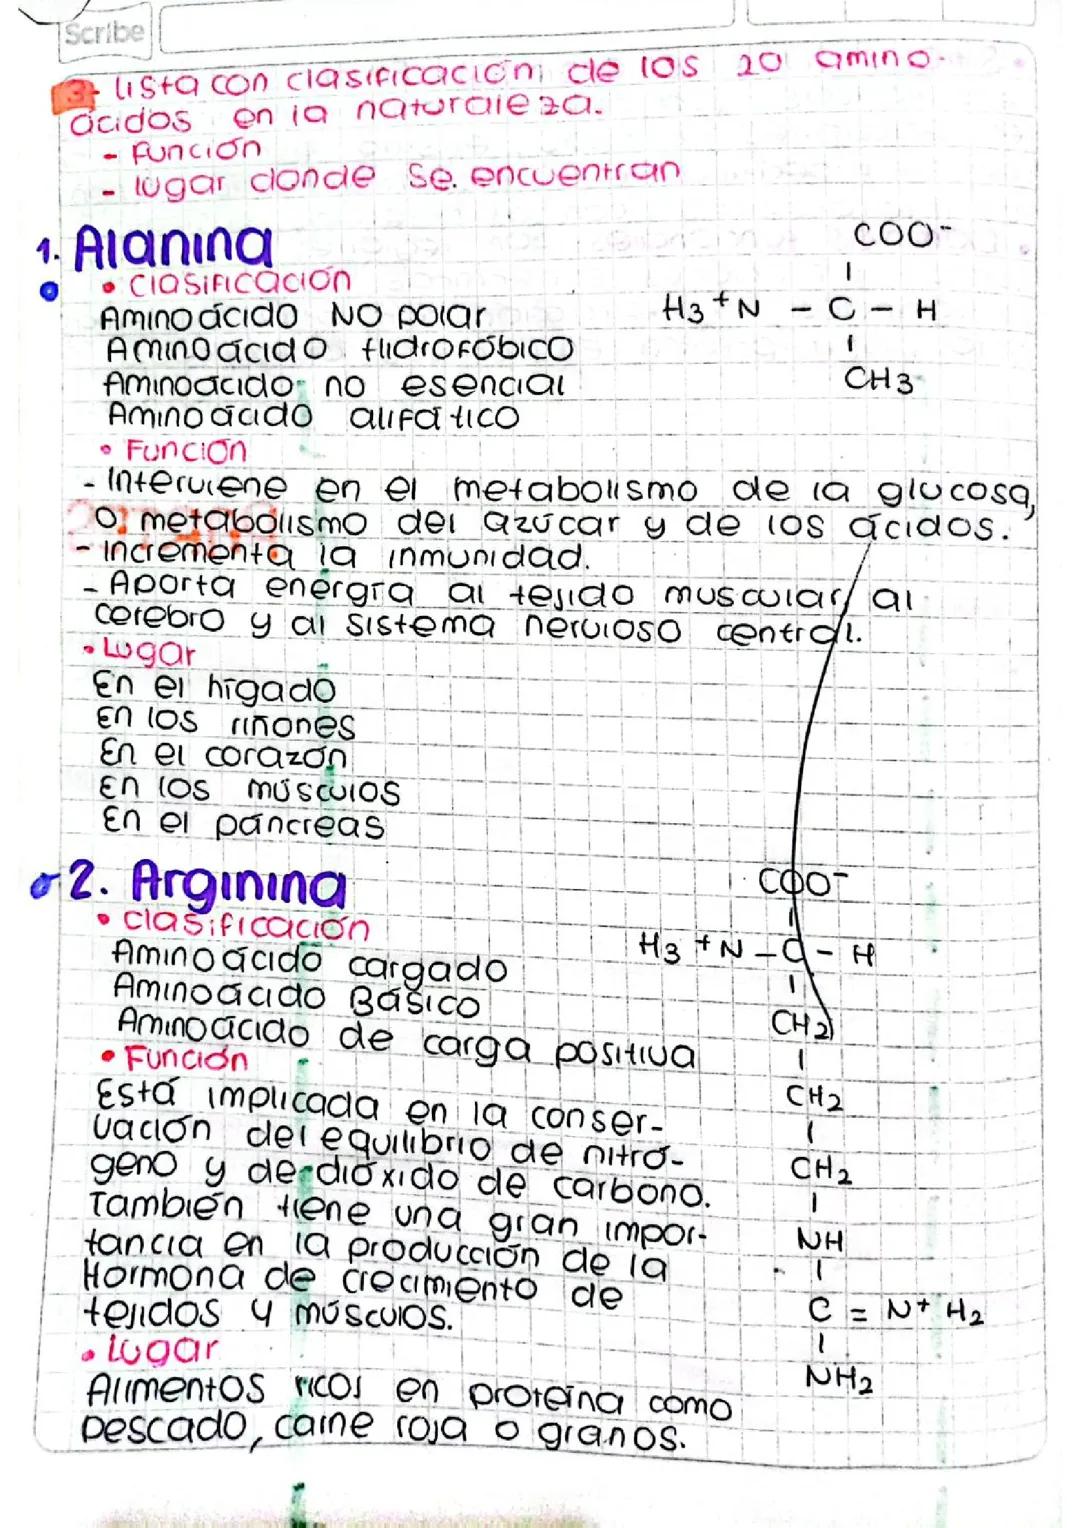 Scribe
3- lista con clasificación de los 20 amino-
ácidos en la naturaleza.
- Función
- lugar donde se encuentran
1. Alanina
• Clasificación
Aminoácido No polar
Aminoácido Hidrofóbico
Aminoácido no esencial
Aminoácido alifático
COO-
|
H3+N - C - H
|
CH3
• Función
- Interviene en el metabolismo de la glucosa,
o, metabolismo del azúcar y de los ácidos.
- Incrementa la inmunidad.
- Aporta energía al tejido muscular, al
cerebro y al sistema nervioso central.
• Lugar
En el hígado
En los riñones
En el corazón
En los músculos
En el páncreas
2. Arginina
• clasificación
Aminoácido cargado
Aminoácido Básico
Aminoácido de carga positiva
• Función
Está implicada en la conser-
vación del equilibrio de nitró-
geno y de dióxido de carbono.
También tiene una gran impor-
tancia en la producción de la
Hormona de crecimiento de
tejidos y músculos.
• Lugar
Alimentos ricos en proteína como
pescado, carne roja o granos.
COO-
|
H3 +N - C - H
|
CH2
|
CH2
|
CH2
|
NH
|
C = N+ H2
|
NH2